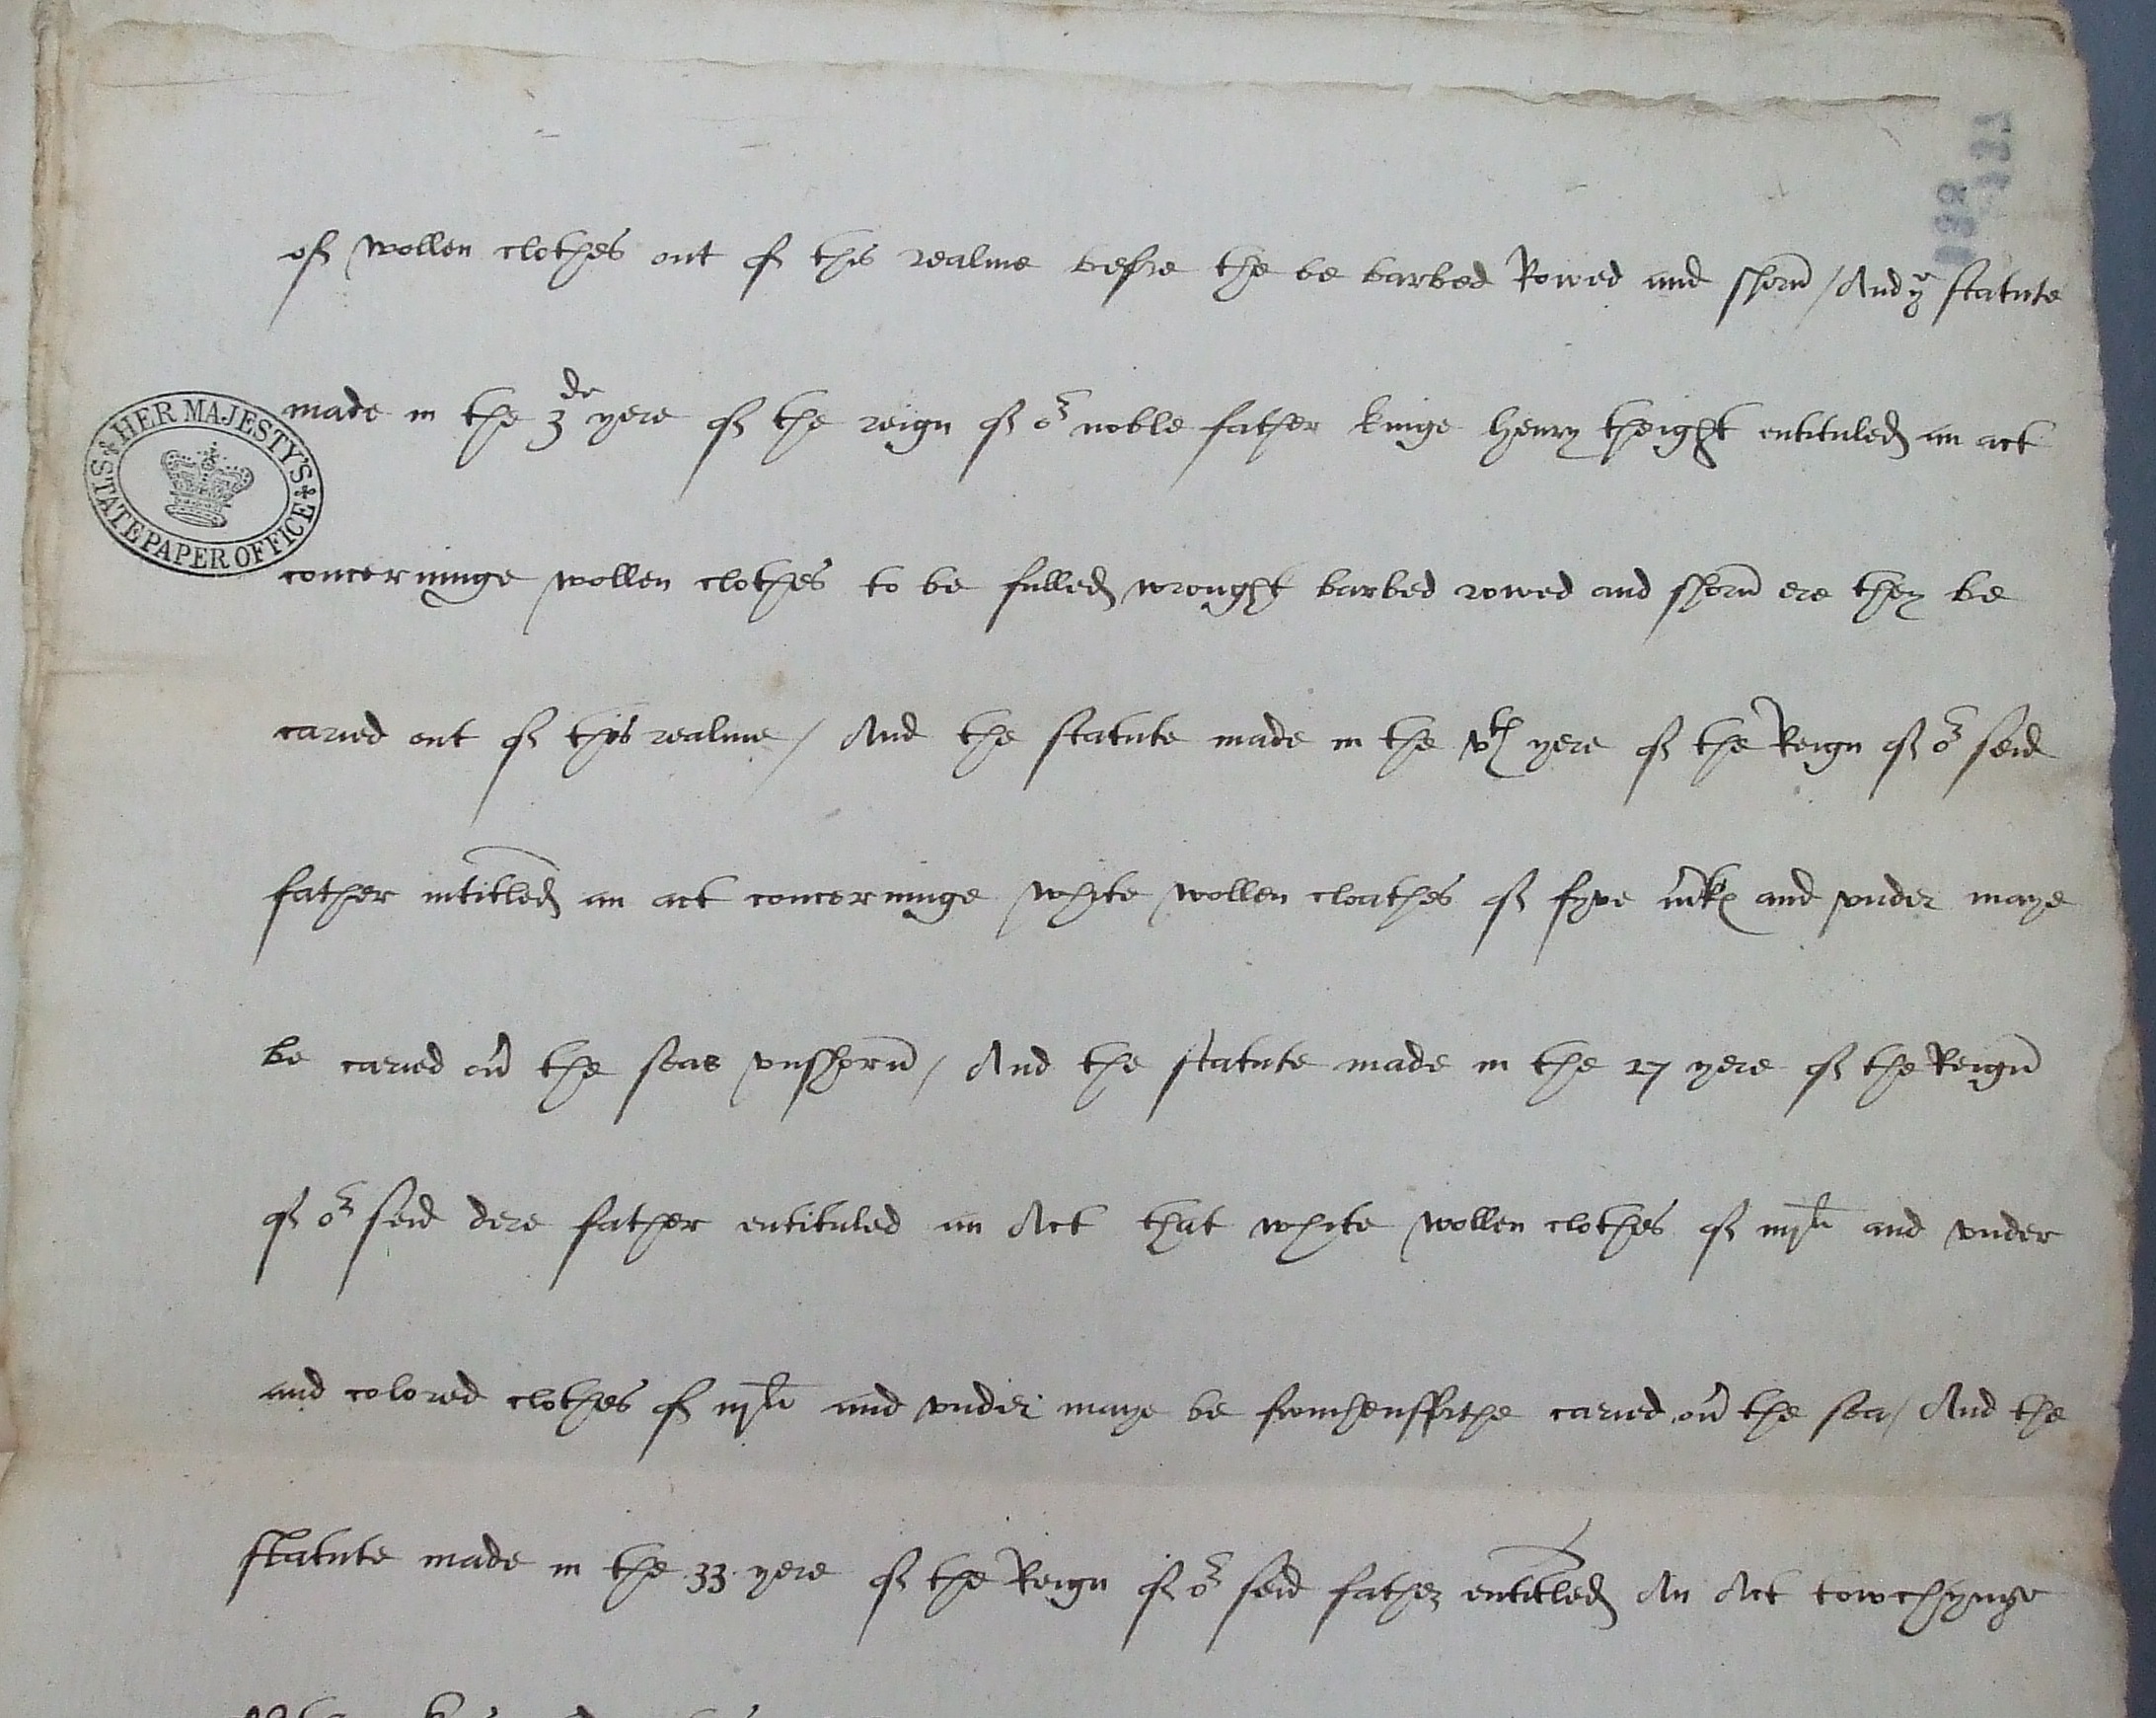 of wollen clothes out of this realme before the be barbed Rowed and shorn / And yͤ statute
made in the 3de yere of the reign of oʳ noble father kinge Henry theight entituled an act
HER MAJESTY'S STATE PAPER OFFICE
concerninge wollen clothes to be fulled wrought barbed rowed and shorn ere they be
caried out of this realme / And the statute made in the vth yere of the Reign of oʳ seid
father intitled an act concerninge whyte wollen cloathes of fyve and under maye
be caried oũ the seas vnshorn / And the statute made in the 27 yere of the Reign
of oʳ seid dere father entituled an Act that whyte wollen clothes of iiijli and vnder
and colored clothes of iijli and vnder maye be caried oũ the sea / And the
statute made in the 33 yere of the Reign of oʳ seid father entitled An Act towchynge